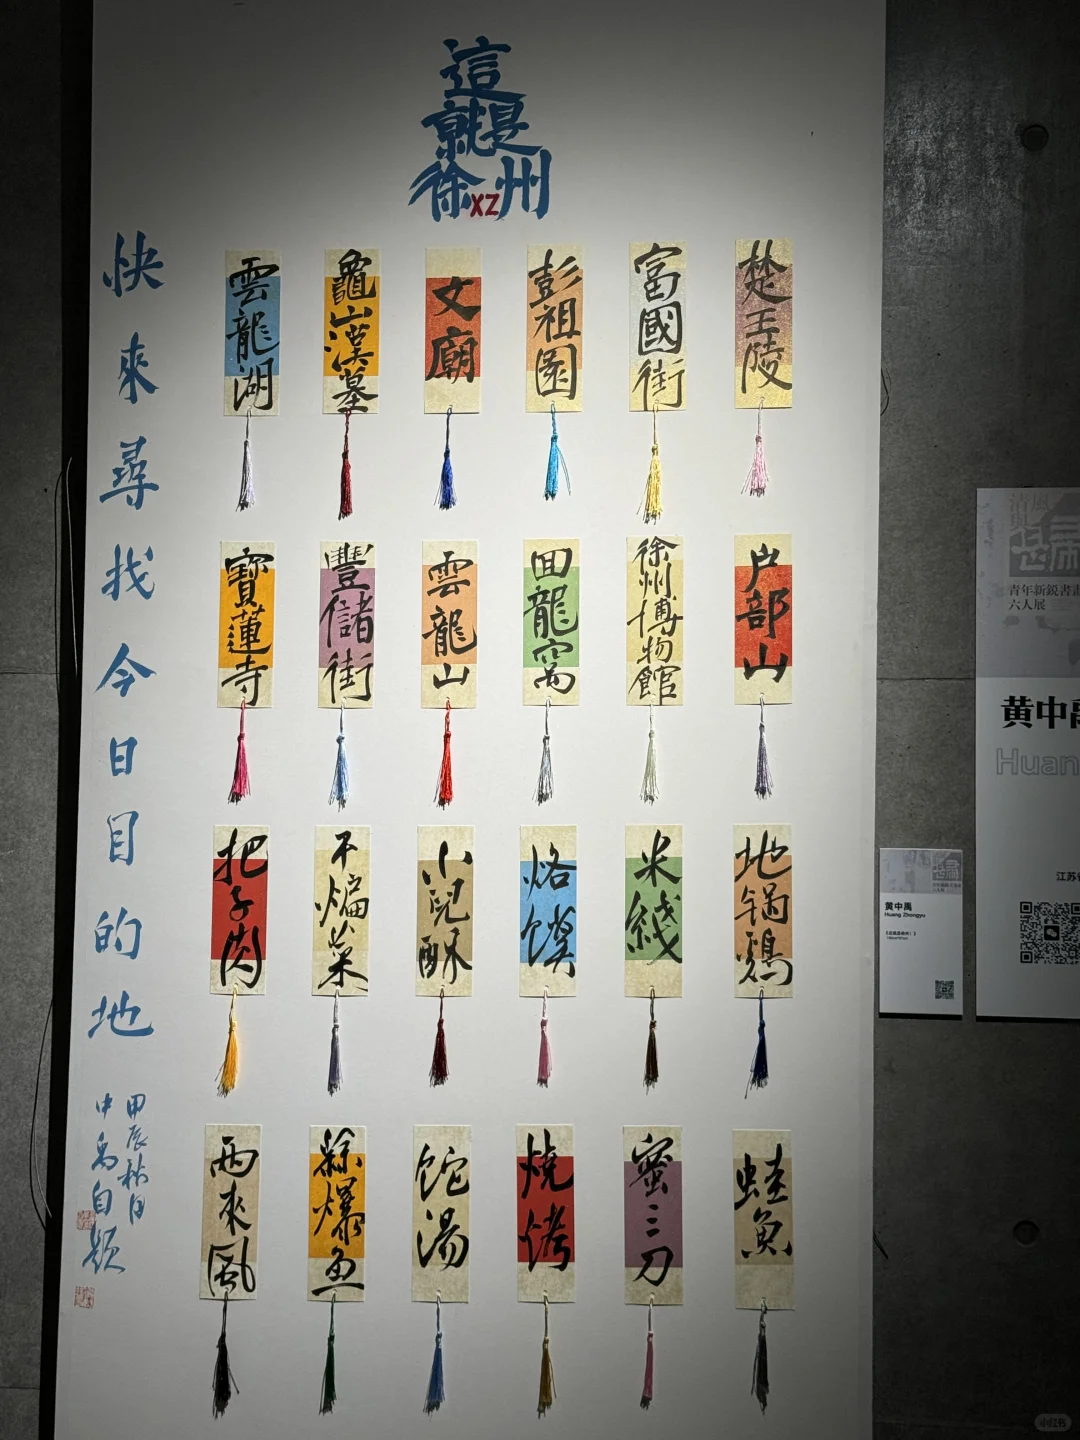 這
就是
徐XZ州
快來尋找今日目的地
甲辰秋月
中禹自題
雲龍湖
龜山漢墓
文廟
彭祖園
富國街
楚王陵
寶蓮寺
豐儲街
雲龍山
回龍窩
徐州博物館
户部山
把子肉
不煸菜
小兒酥
烙饃
米綫
地锅鷄
兩來風
絲爆魚
饣它湯
燒烤
蜜三刀
蛙魚
青年新銳書畫
六人展
黄中禹
Huan
江苏省
黄中禹
Huang Zhongyu
《這就是徐州》
小红书